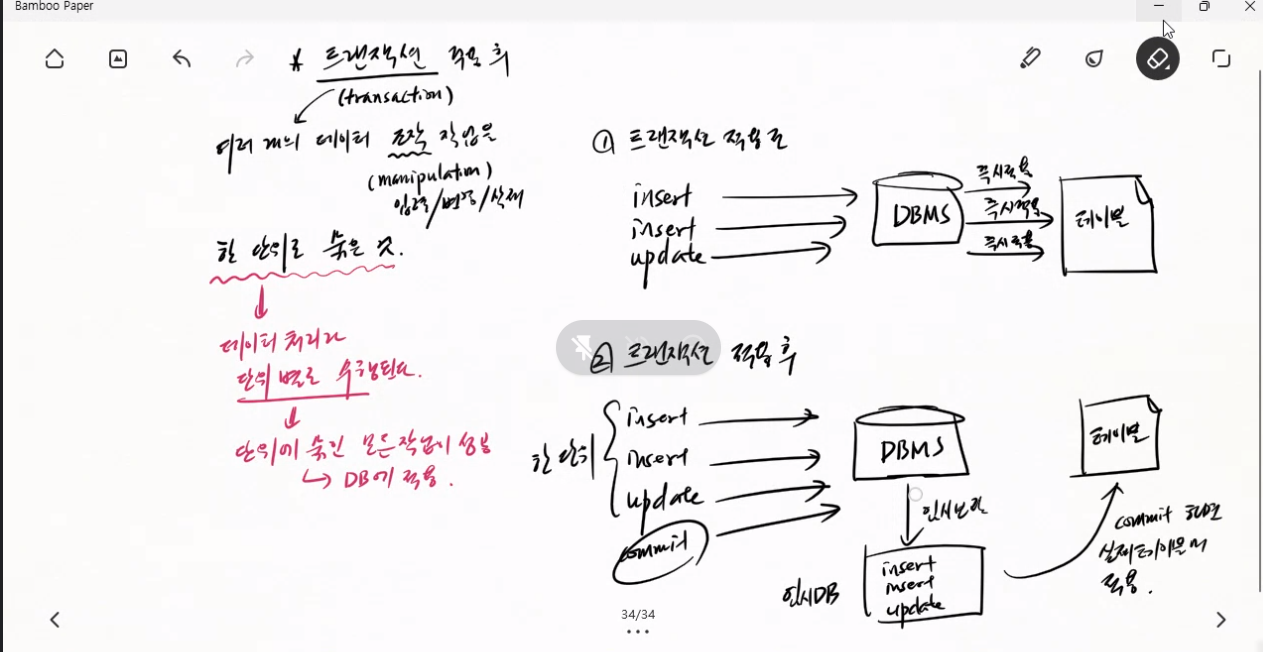 Bamboo Paper
* 트랜잭션 적용 후
(transaction)
여러 개의 데이터 조작 작업을
(manipulation)
입력/변경/삭제
한 단위로 묶은 것.
데이터 처리가
단위 별로 수행된다.
단위에 묶인 모든 작업이 성공
↳ DB에 적용.
① 트랜잭션 적용 전
insert
insert
update
DBMS
즉시적용
즉시적용
즉시적용
테이블
② 트랜잭션 적용 후
한 단위
insert
insert
update
commit
DBMS
임시보관
임시DB
insert
insert
update
테이블
commit 하면
실제 테이블에
적용.
34/34